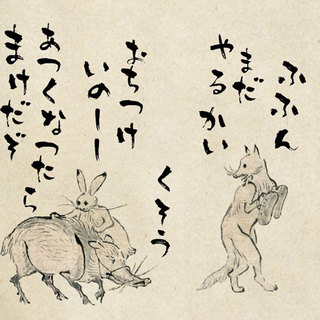 ふふん
まだ
やるかい
くそう
おちつけ
いのーー
あつくなったら
まけだぞ